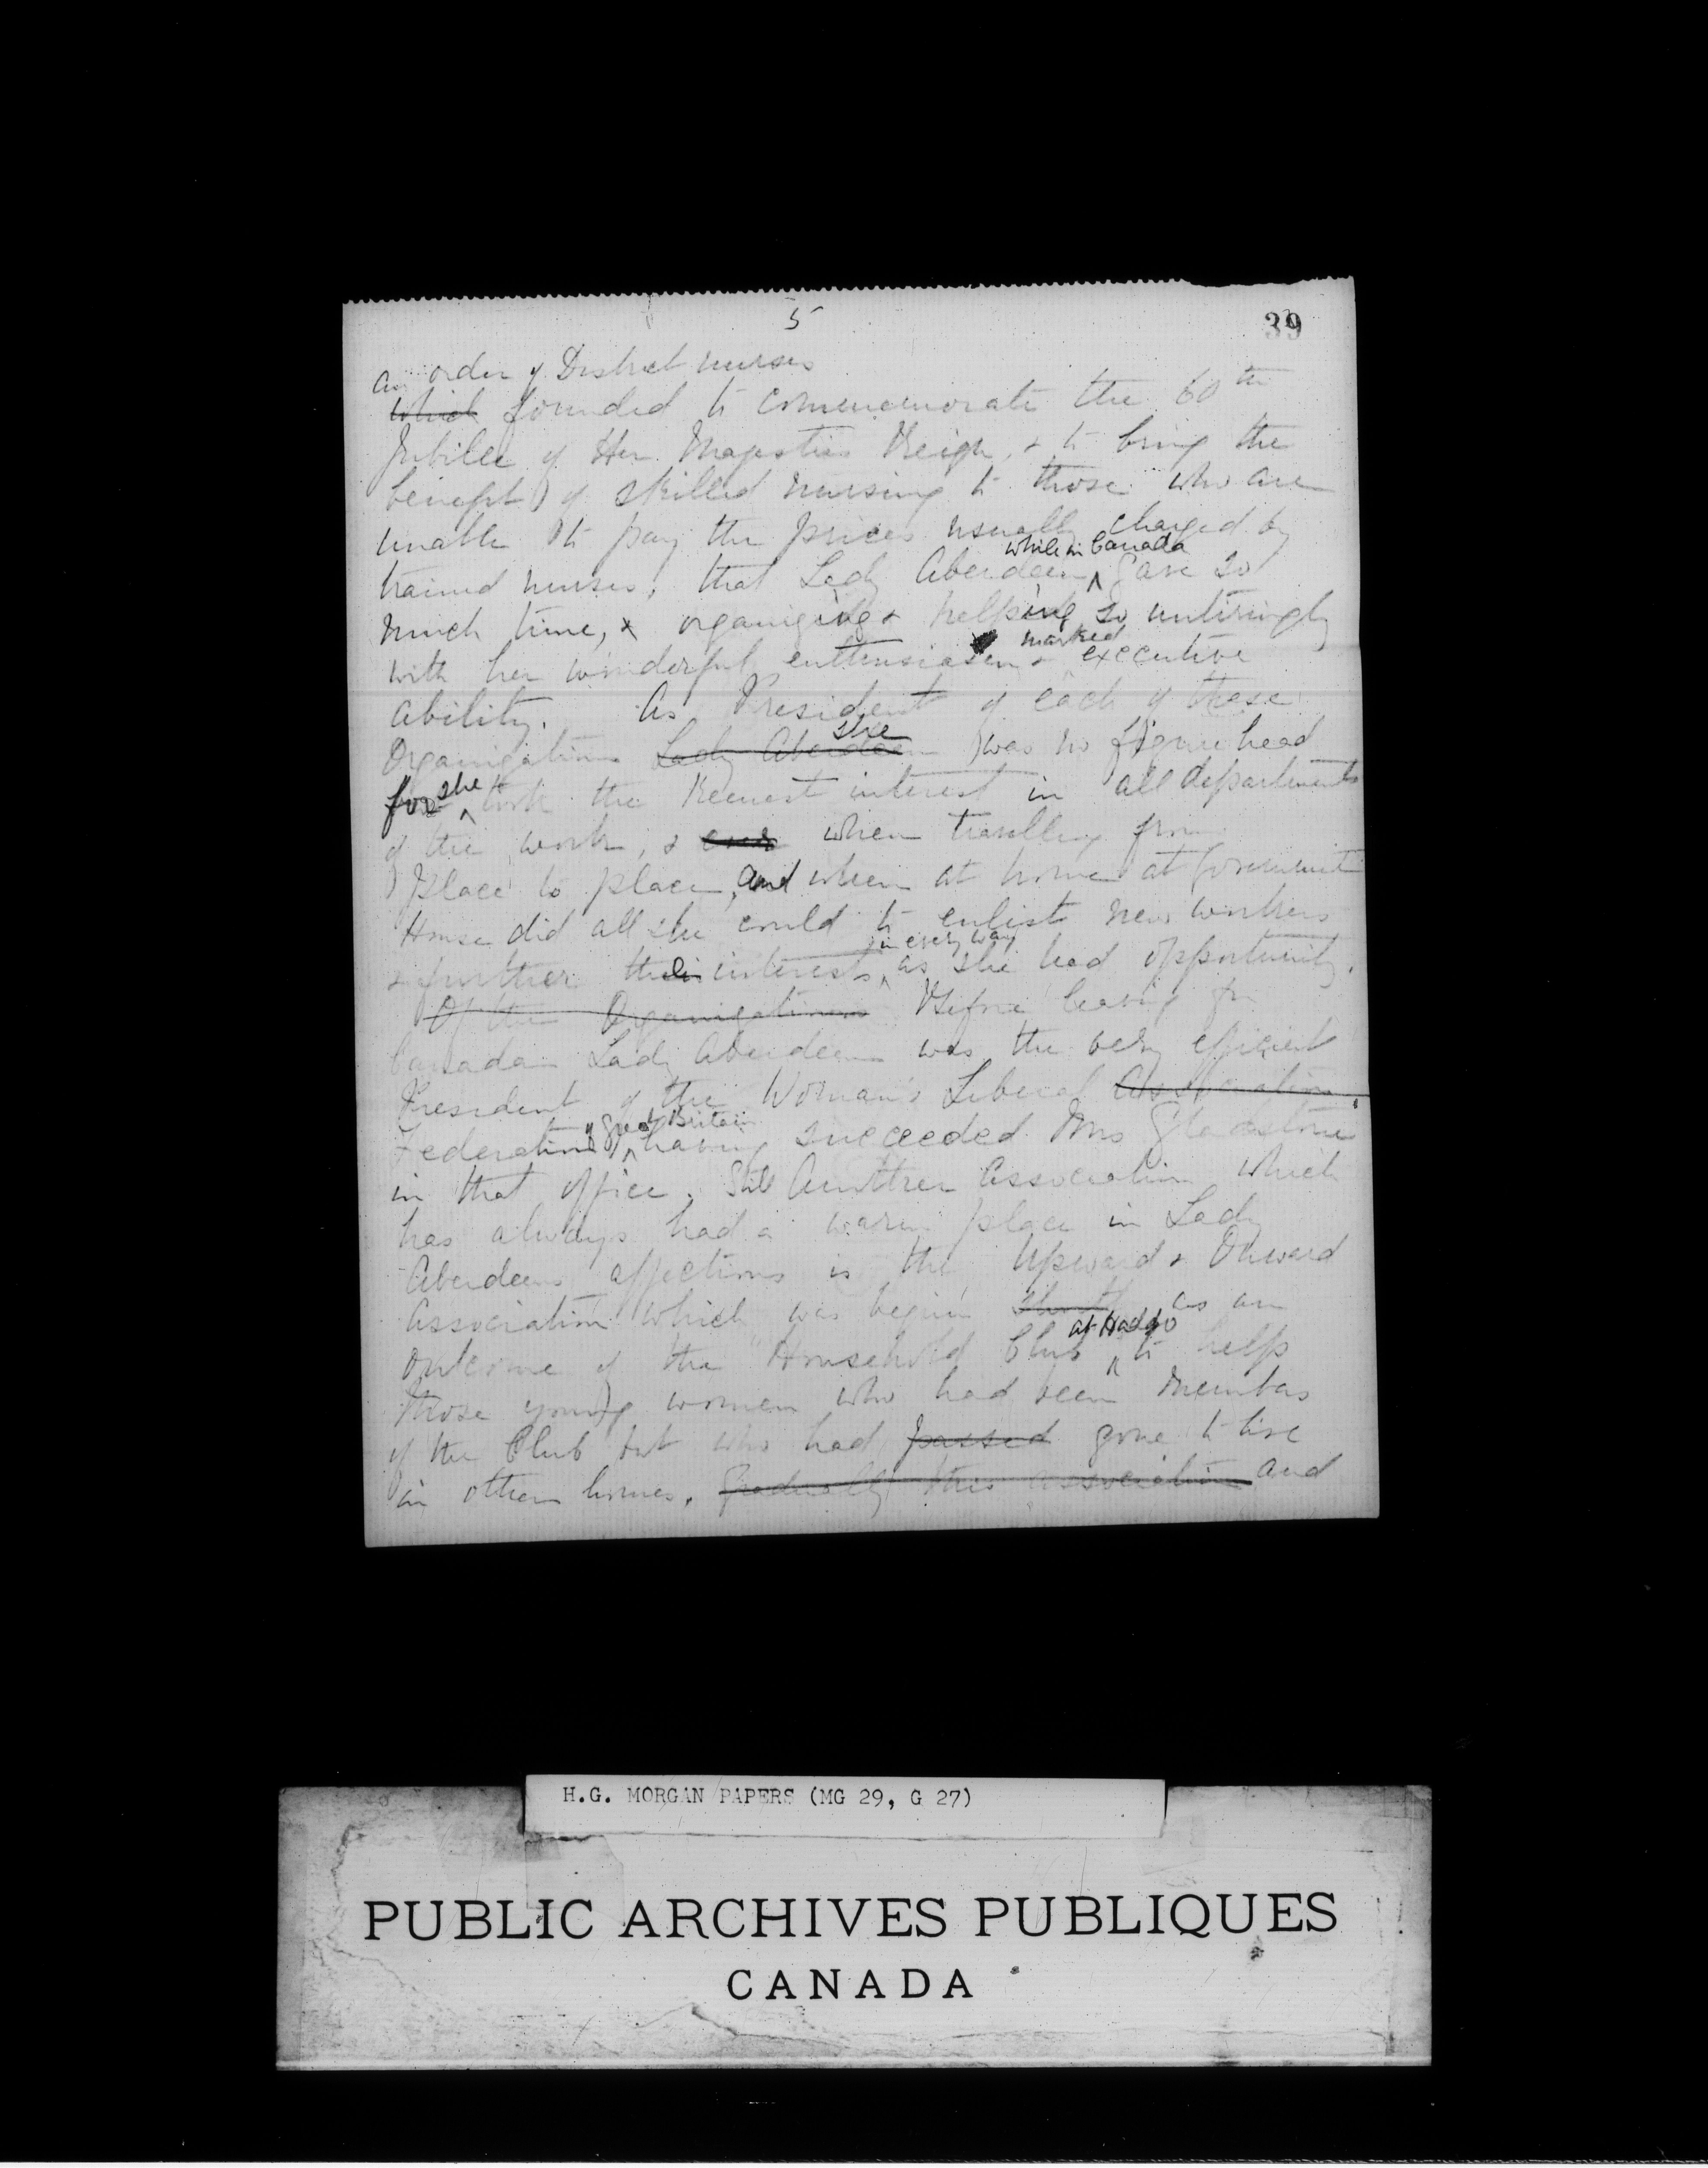 5
39
an order of District nurses
which founded to commemorate the 60th
Jubilee of Her Majesties Reign, & to bring the
benefit of skilled nursing to those who are
unable to pay the prices usually charged by
while in Canada
trained nurses, that Lady Aberdeen ^ gave so
much time, & organizing & helping so untiringly
marked
with her wonderful enthusiasm & executive
ability. As President of each of these
she
Organizations Lady Aberdeen was no figure head
for she ^ took the keenest interest in all departments
of the work, & when travelling from
place to place, and when at home at Government
House did all she could to enlist new workers
in every way
& further their interests ^ as she had opportunity.
Of the Organizations Before leaving for
Canada Lady Aberdeen was the very efficient
President of the Woman's Liberal Association
of Great Britain
Federation ^ having succeeded Mrs Gladstone
in that office. Still Another Association which
has always had a warm place in Lady
Aberdeens affections is the Upward & Onward
Association which was begun as an
at Haddo
outcome of the "Household Club ^ to help
those young women who had been members
of the Club but who had passed gone to live
in other homes. Gradually this association and
H.G. MORGAN PAPERS (MG 29, G 27)
PUBLIC ARCHIVES PUBLIQUES
CANADA